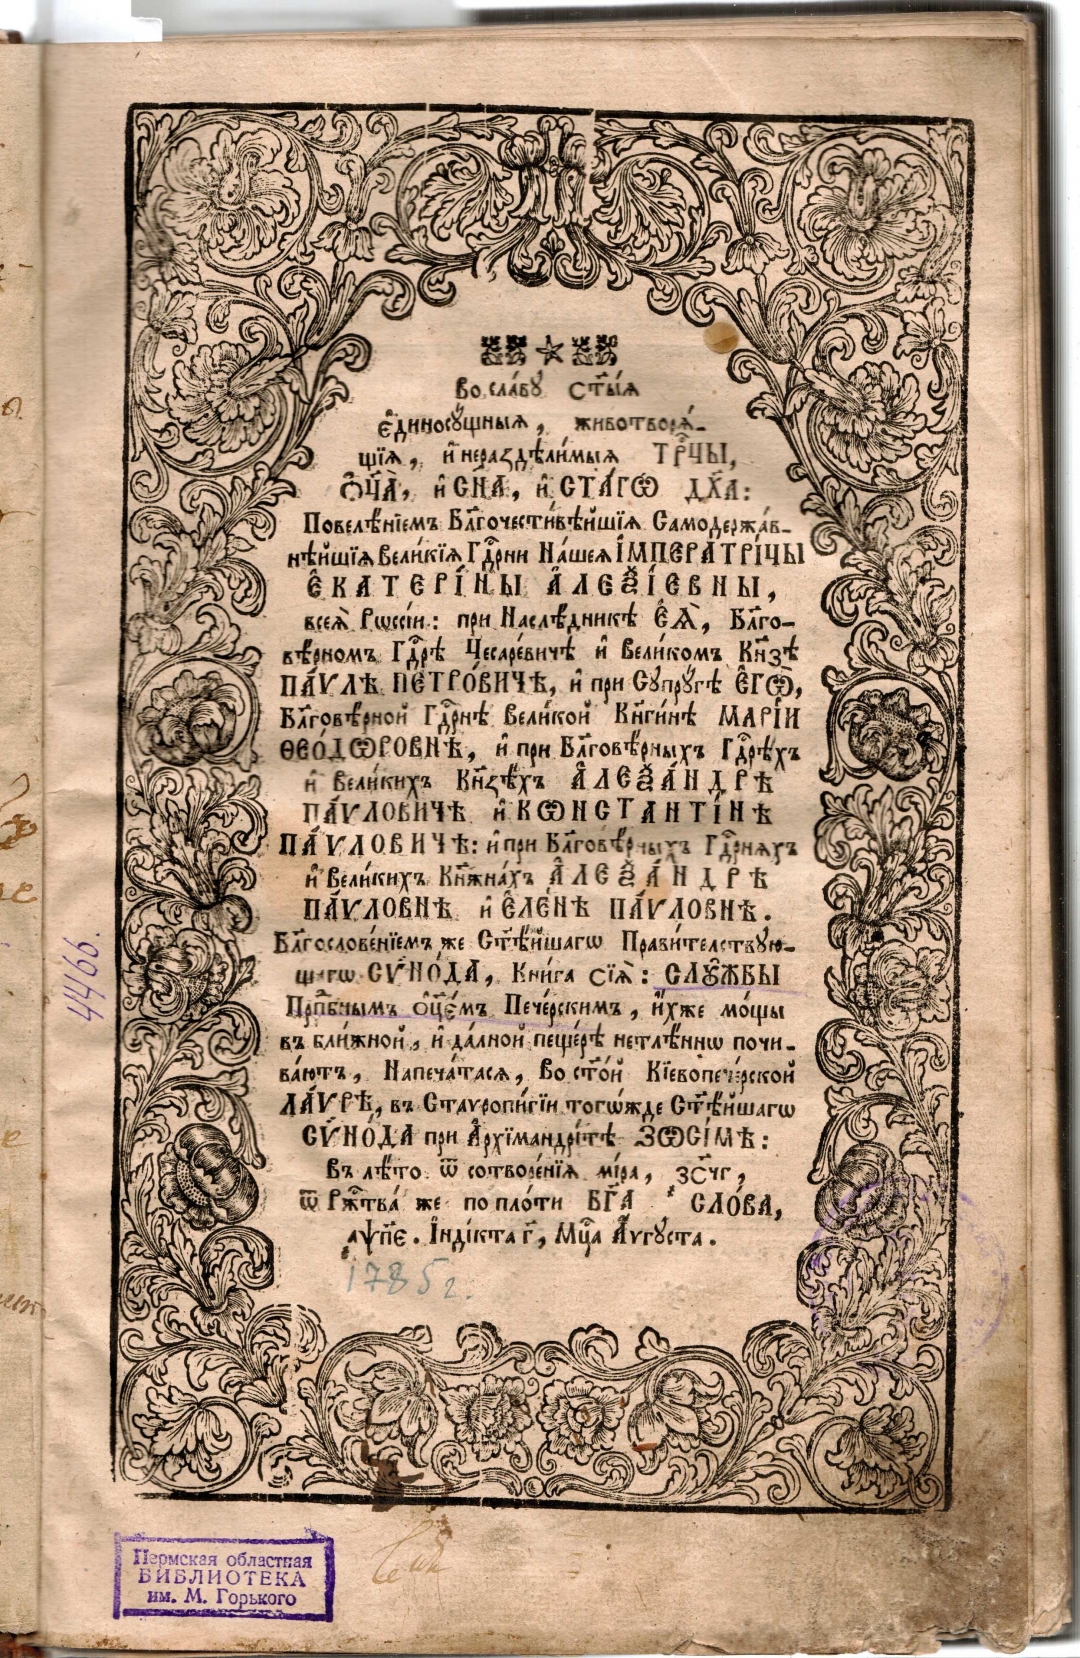 Во сла́вꙋ ст҃ы́ѧ
є҆диносꙋ́щныѧ, животворѧ́-
щїѧ, и҆ нераздѣли́мыѧ ТРЦ҃Ы,
Ѻ҆Ц҃А̀, и҆ СН҃А, и҆ СТ҃А́ГѠ ДХ҃А:
Повелѣ́нїемъ Бл҃гочести́вѣйшїѧ Самодержа́в-
нѣйшїѧ Вели́кїѧ Гдⷭ҇рни На́шеѧ І҆МПЕРАТРІ́ЦЫ
Є҆КАТЕРІ́НЫ А҆ЛЕѮІ́ЕВНЫ,
всеѧ̀ Рѡссі́и: при Наслѣ́дникѣ Є҆Ѧ̀, Бл҃го-
вѣ́рномъ Гдⷭ҇рѣ Чесаре́вичѣ и҆ Вели́комъ Кн҃зѣ
ПА́ѴЛѢ ПЕТРО́ВИЧѢ, и҆ при Сꙋпрꙋ́гѣ Є҆ГѠ̀,
Бл҃говѣ́рной Гдⷭ҇рнѣ Вели́кой Кн҃ги́нѣ МАРІ́И
ѲЕО́ДѠРОВНѢ, и҆ при Бл҃говѣ́рныхъ Гдⷭ҇рѣхъ
и҆ Вели́кихъ Кн҃зѣ́хъ А҆ЛЕѮА́НДРѢ
ПА́ѴЛОВИЧѢ и҆ КѠНСТАНТІ́НѢ
ПА́ѴЛОВИЧѢ: и҆ при Бл҃говѣ́рныхъ Гдⷭ҇рнѧхъ
и҆ Вели́кихъ Кн҃жна́хъ А҆ЛЕѮА́НДРѢ
ПА́ѴЛОВНѢ и҆ Є҆ЛЕ́НѢ ПА́ѴЛОВНѢ.
Бл҃гослове́нїемъ же Ст҃ѣ́йшагѡ Прави́телствꙋю-
щагѡ СѴНО́ДА, Кни́га сїѧ̀: СЛꙊ́ЖБЫ
Прпⷣбнымъ Ѻ҆ц҃є́мъ Пече́рскимъ, и҆́хже мо́щы
въ бли́жной, и҆ да́лной пеще́рѣ нетлѣ́ннѡ почи-
ва́ютъ, Напеча́тасѧ, Во ст҃о́й Кіевопече́рской
ЛА́ѴРѢ, въ Ставропи́гїи тогѡ́жде Ст҃ѣ́йшагѡ
СѴНО́ДА при А҆рхїмандрі́тѣ ЗѠСІ́МѢ:
Въ лѣ́то ѿ сотворе́нїѧ мі́ра, ҂зс҃чг,
ѿ Ржⷭ҇тва́ же по пло́ти БГ҃А СЛО́ВА,
҂аѱп҃є. І҆ндіⷦ҇та г҃, Мцⷭ҇а А҆́ѵгꙋста.
1785 г.
4466.
Пермская областная
БИБЛИОТЕКА
им. М. Горького